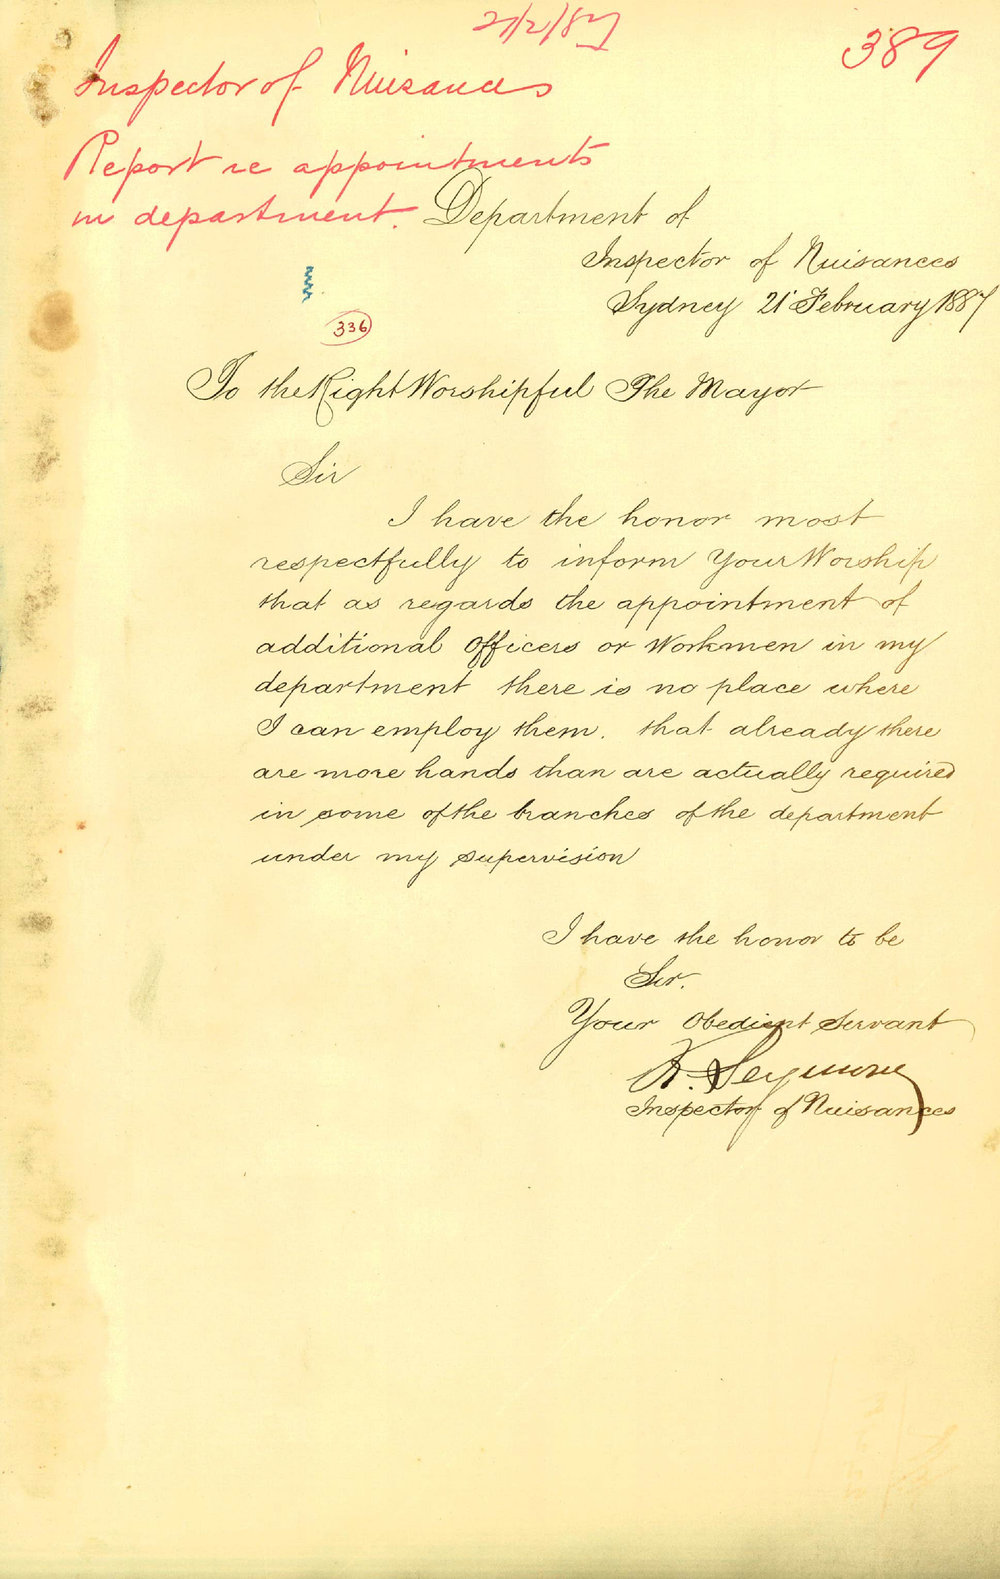 21/2/87
389
Inspector of Nuisances
Report re appointments
in department.
Department of
Inspector of Nuisances
Sydney 21st February 1887
336
To the Right Worshipful The Mayor
Sir
I have the honor most
respectfully to inform Your Worship
that as regards the appointment of
additional Officers or Workmen in my
department there is no place where
I can employ them. that already there
are more hands than are actually required
in some of the branches of the department
under my supervision
I have the honor to be
Sir.
Your Obedient Servant
Seymour
Inspector of Nuisances